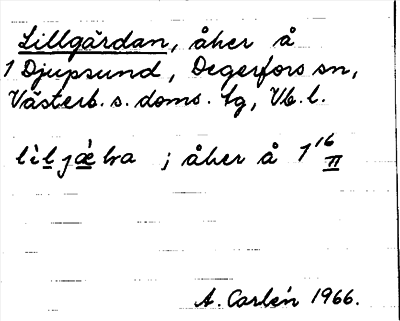 Lillgärdan, åker å
1 Djupsund, Degerfors sn,
Västerb. s. doms. tg, Vb. l.
; åker å 1¹⁶ II
A. Carlén 1966.